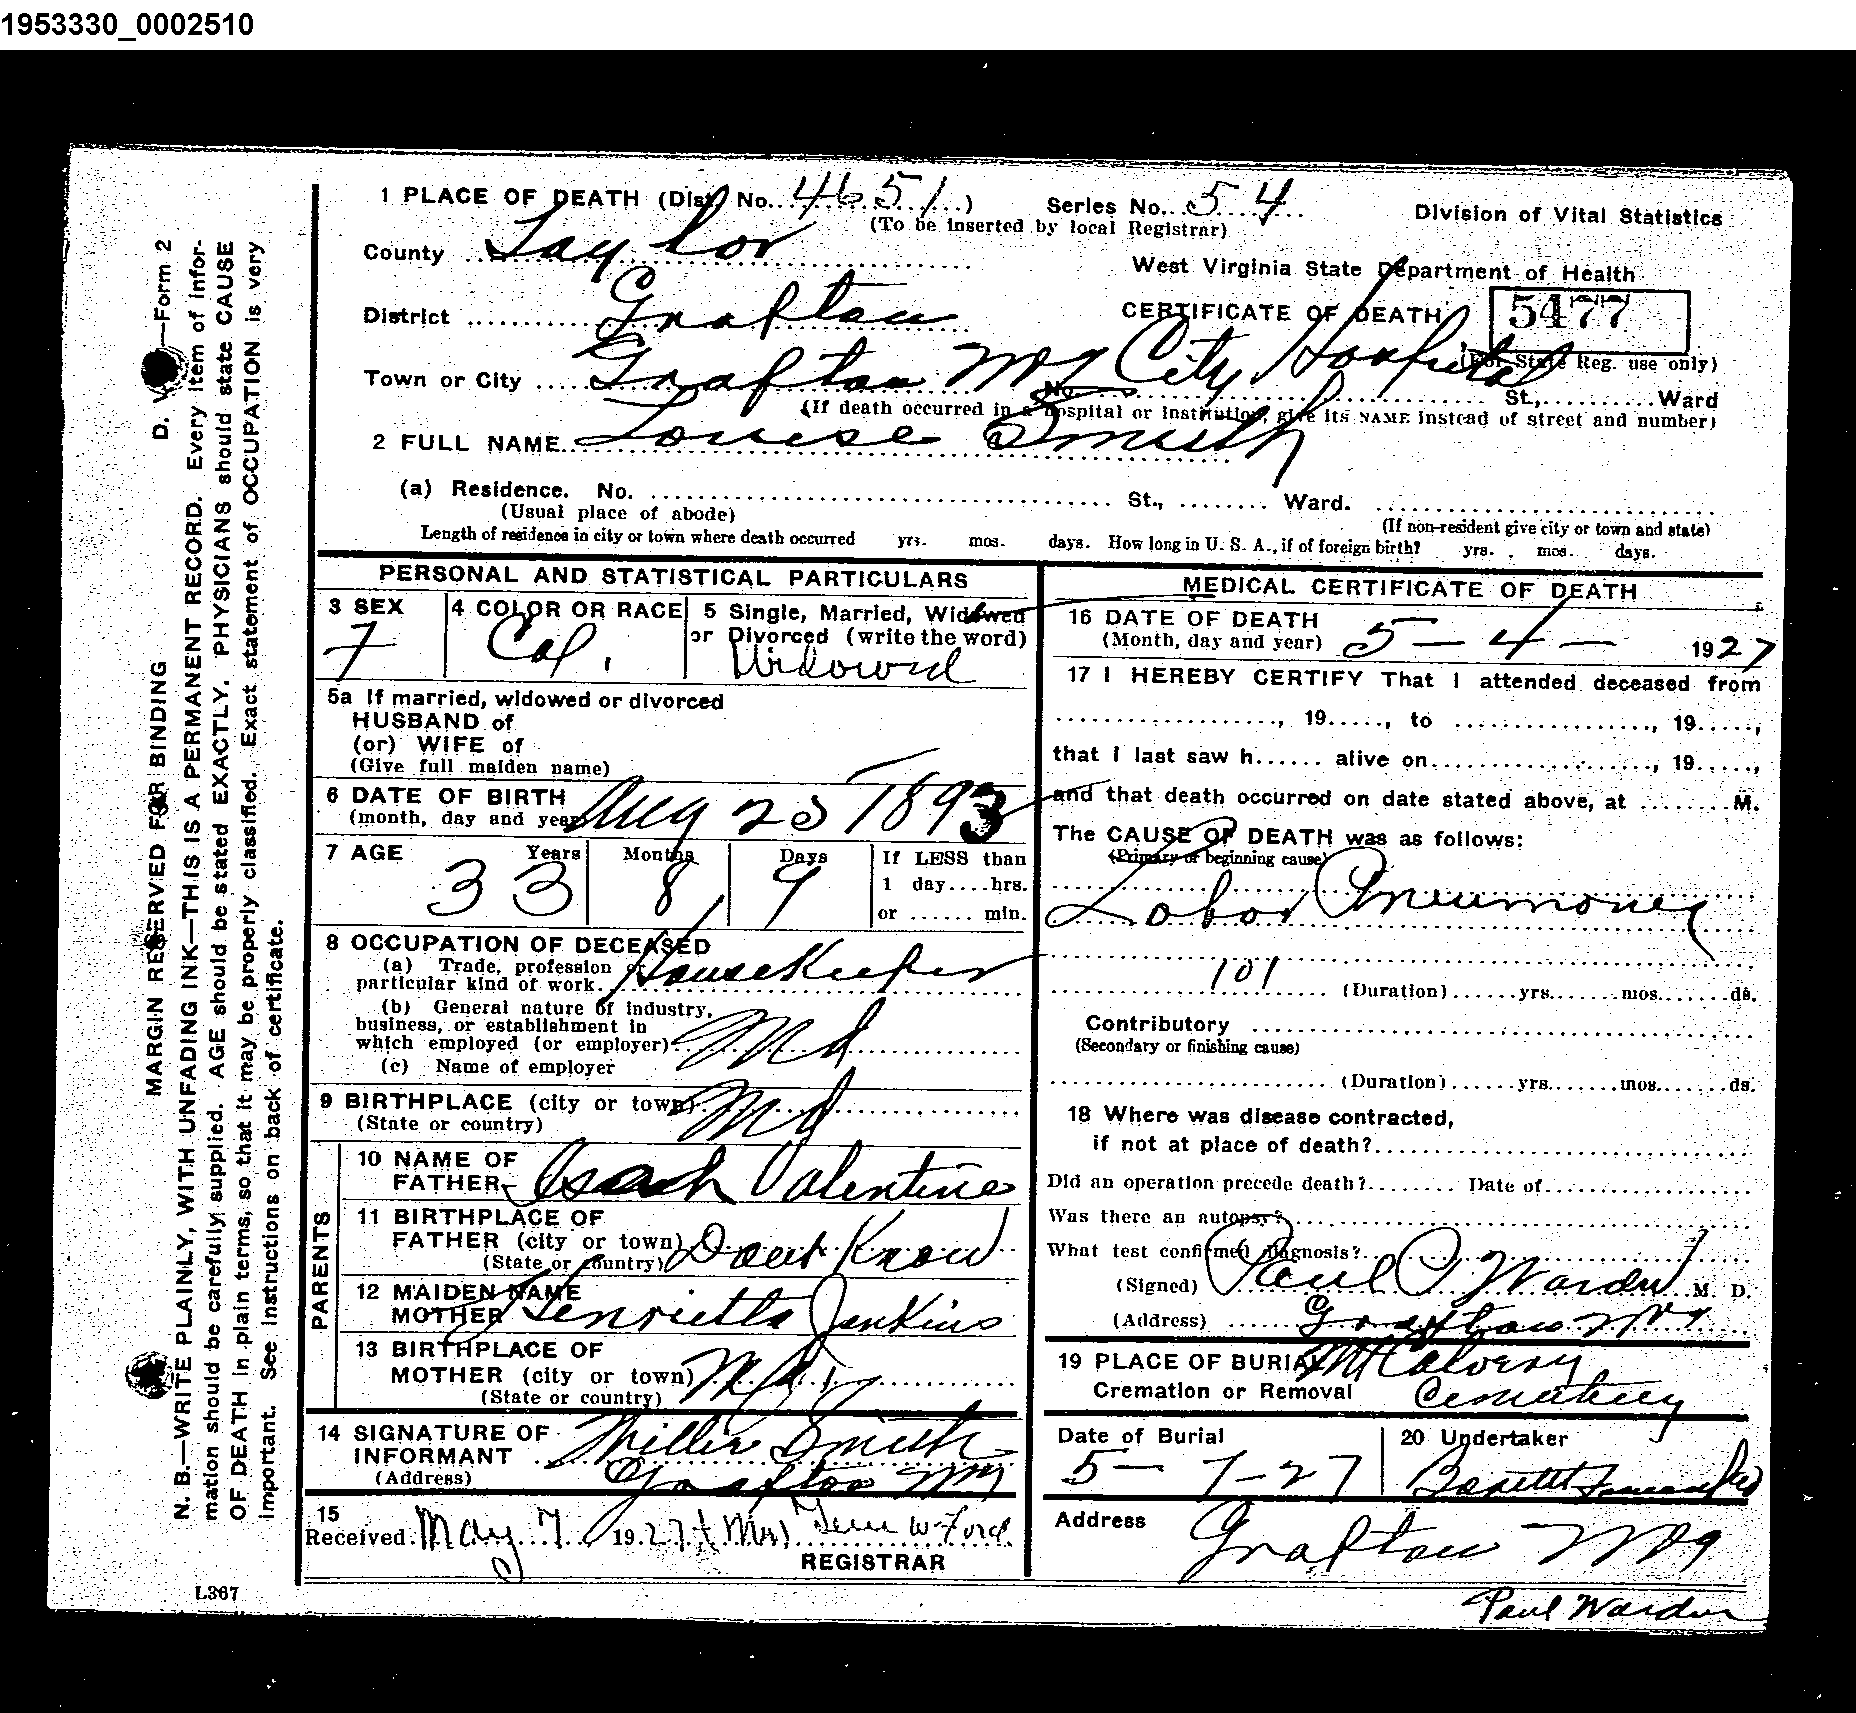 1953330_0002510
1 PLACE OF DEATH (Dist. No. 4651) Series No. 54
(To be inserted by local Registrar)
Division of Vital Statistics
County Taylor
West Virginia State Department of Health
District Grafton
CERTIFICATE OF DEATH 5477
(For State Reg. use only)
Town or City Grafton City Hospital No. St., Ward
(If death occurred in a hospital or institution, give its NAME instead of street and number)
2 FULL NAME Louise Smith
(a) Residence. No. St., Ward.
(Usual place of abode) (If non-resident give city or town and state)
Length of residence in city or town where death occurred yrs. mos. days. How long in U. S. A., if of foreign birth? yrs. mos. days.
PERSONAL AND STATISTICAL PARTICULARS
3 SEX 4 COLOR OR RACE 5 Single, Married, Widowed
or Divorced (write the word)
F Col. Widowd
5a If married, widowed or divorced
HUSBAND of
(or) WIFE of
(Give full maiden name)
6 DATE OF BIRTH
(month, day and year) Aug 25 1893
7 AGE Years Months Days If LESS than
33 8 9 1 day....hrs.
or ...... min.
8 OCCUPATION OF DECEASED
(a) Trade, profession or
particular kind of work. Housekeeper
(b) General nature of industry,
business, or establishment in
which employed (or employer) Md
(c) Name of employer
9 BIRTHPLACE (city or town) Md
(State or country)
PARENTS
10 NAME OF
FATHER Valentine
11 BIRTHPLACE OF
FATHER (city or town) Dont Know
(State or country)
12 MAIDEN NAME
MOTHER Henrietta Jenkins
13 BIRTHPLACE OF
MOTHER (city or town) Md
(State or country)
14 SIGNATURE OF
INFORMANT Smith
(Address) Grafton
15
Received May 7 1927 Ford
REGISTRAR
MEDICAL CERTIFICATE OF DEATH
16 DATE OF DEATH
(Month, day and year) 5 - 4 - 1927
17 I HEREBY CERTIFY That I attended deceased from
, 19....., to , 19.....,
that I last saw h...... alive on , 19.....,
and that death occurred on date stated above, at M.
The CAUSE OF DEATH was as follows:
(Primary or beginning cause)
Lobor Pneumoney
101
(Duration) yrs. mos. ds.
Contributory
(Secondary or finishing cause)
(Duration) yrs. mos. ds.
18 Where was disease contracted,
if not at place of death?
Did an operation precede death? Date of
Was there an autopsy?
What test confirmed diagnosis?
(Signed) Paul P Warden M. D.
(Address) Grafton
19 PLACE OF BURIAL Mt Calvery
Cremation or Removal Cemetery
Date of Burial 20 Undertaker
5 - 7 - 27
Address
Grafton
Paul Warden
MARGIN RESERVED FOR BINDING
D. V. —Form 2
N. B.—WRITE PLAINLY, WITH UNFADING INK—THIS IS A PERMANENT RECORD. Every item of infor-
mation should be carefully supplied. AGE should be stated EXACTLY. PHYSICIANS should state CAUSE
OF DEATH in plain terms, so that it may be properly classified. Exact statement of OCCUPATION is very
important. See instructions on back of certificate.
L367